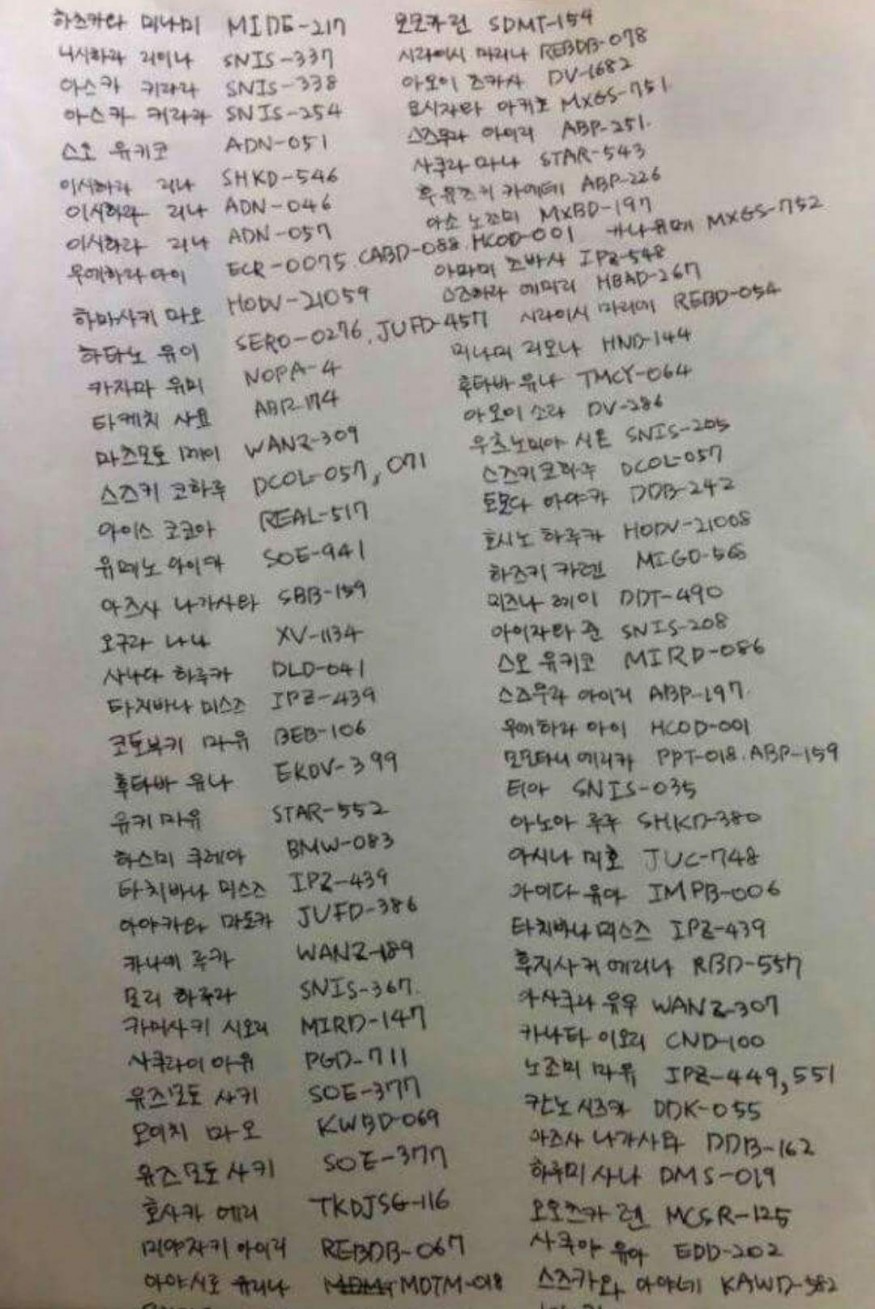 하즈카타 미나미 MIDE-217
니시하라 리이나 SNIS-337
아스카 키라라 SNIS-338
아스카 키라라 SNIS-254
스오 유키코 ADN-051
이시하라 리나 SHKD-546
이시하라 리나 ADN-046
이시하라 리나 ADN-057
우에하라 아이 ECR-0075. CABD-088. HCOD-001
하마사키 마오 HODV-21059
하타노 유이 SERO-0276, JUFD-457
카자마 유미 NOPA-4
타케치 사요 ABP-174
마츠모토 메이 WANZ-309
스즈키 코하루 DCOL-057, 071
아이스 코코아 REAL-517
유메노 아이카 SOE-941
아즈사 나가사와 SBB-159
오구라 나나 XV-1134
사나다 하루카 DLD-041
타치바나 미스즈 IPZ-439
코토부키 마유 BEB-106
후타바 유나 EKDV-399
유키 마유 STAR-552
하스미 쿠레아 BMW-083
타치바나 미스즈 IPZ-439
아야카와 마도카 JUFD-386
카나에 루카 WANZ-189
모리 하루라 SNIS-367.
카미사키 시오리 MIRD-147
사쿠라이 아유 PGD-711
유즈모토 사키 SOE-377
모이치 마오 KWBD-069
유즈모토 사키 SOE-377
호사카 에리 TKDJSG-116
미야자키 아이리 REBDB-067
아야시로 유리나 MDTM-018
모모카 린 SDMT-154
시라이시 마리나 REBDB-078
아오이 츠카사 DV-1682
요시자와 아키호 MXGS-751
스즈무라 아이리 ABP-251.
사쿠라 마나 STAR-543
후유즈키 카에데 ABP-226
아소 노조미 MXBD-197
카나 유메 MXGS-752
아마미 츠바사 IPZ-548
스즈하라 에미리 HBAD-267
시라이시 마리에 REBD-054
미나미 리오나 HND-144
후타바 유나 TMCY-064
아오이 소라 DV-286
우츠노미야 시온 SNIS-205
스즈키 코하루 DCOL-057
토모다 아야카 DDB-242
호시노 하루카 HODV-21008
하즈키 카렌 MIGD-568
미즈나 레이 DDT-490
아이자와 준 SNIS-208
스오 유키코 MIRD-086
스즈무라 아이리 ABP-197
우에하라 아이 HCOD-001
모모타니 에리카 PPT-018. ABP-159
티아 SNIS-035
아노아 루루 SHKD-380
아시나 미호 JUC-748
가이다 유아 IMPB-006
타치바나 미스즈 IPZ-439
후지사키 에리나 RBD-557
아사쿠라 유우 WANZ-307
카나타 이오리 CND-100
노조미 마유 IPZ-449, 551
칸노 시즈카 DDK-055
아즈사 나가사와 DDB-162
하루미 사나 DMS-019
오오츠카 렌 MCSR-125
사쿠야 유아 EDD-202
스즈카와 아야네 KAWD-582